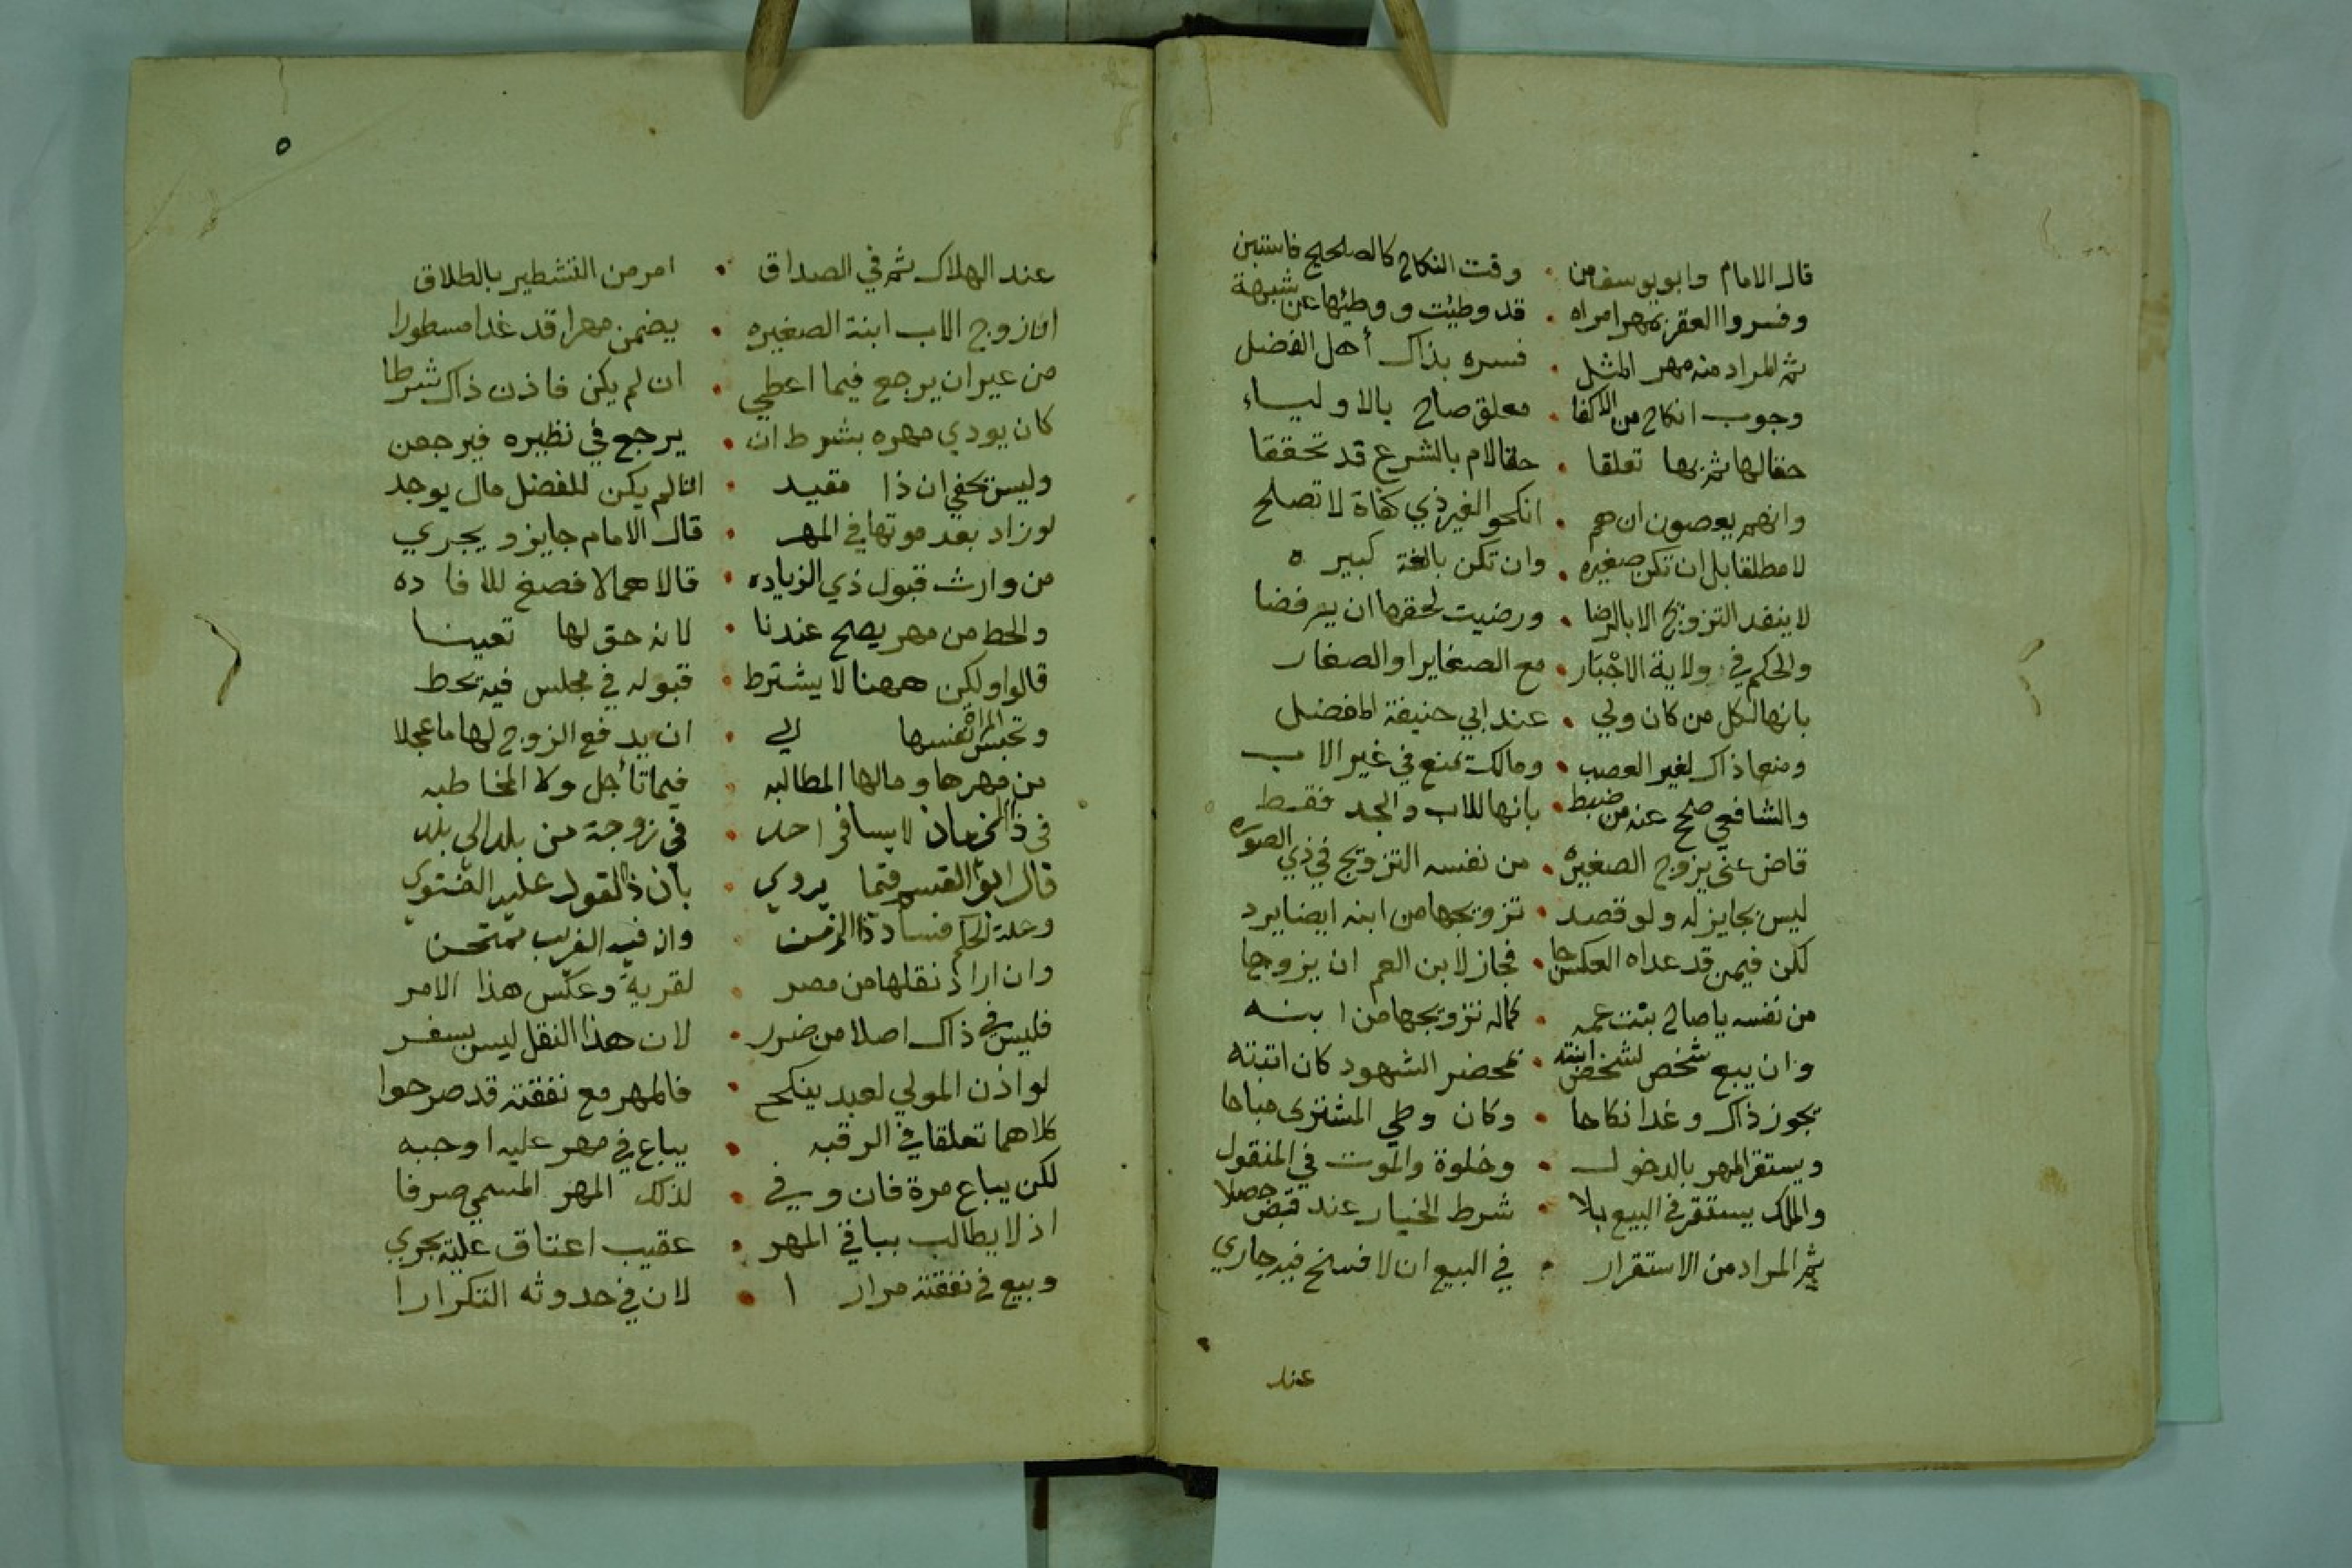 قال الامام وابويوسف من • وقت النكاح كالصحيح فاستبن
وفسروا العقر بمهر امراه • قد وطيئت ووطيئها عن شبهة
ثم المراد منه مهر المثل • فسره بذاك أهل الفضل
وجوب انكاح من الاكفا • معلق صاح بالاولياء
حقا لها ثم بها تعلقا • حقا لام بالشرع قد تحققا
وانهم يعصون ان هم • انكحوا لغير ذي كفاة لا تصلح
لا مطلقا بل ان تكن صغيره • وان تكن بالغة كبيره
لا ينفد التزويج الا بالرضا • ورضيت لحقها ان يرفضا
والحكم في ولاية الاجبار • مع الصغاير او الصغار
بانها لكل من كان ولي • عند ابي حنيفة المفضل
ومنعا ذاك لغير العصب • ومالك تمنع في غير الاب
والشافعي صح عنه من ضبط • بانها للاب والجد فقط
قاض عنى يزوج الصغيره • من نفسه التزويج في ذي الصوره
ليس بجايز له ولو قصد • تزويجها من ابنه ايضا يرد
لكن فيمن قد عداه العكس جا • فجاز لابن العم ان يزوجا
من نفسه يا صاح بنت عمه • كماله تزويجها من ابنه
وان يبع شخص لشخص ابنته • بمحضر الشهود كان اثبته
يجوز ذاك وغدا نكاحا • وكان وطي المشترى مباحا
ويستقر المهر بالدخول • وخلوة والموت في المنقول
والملك يستقر في البيع بلا • شرط الخيار عند قبض حصلا
ثم المراد من الاستقرار • في البيع ان لا فسخ فيه جاري
عند
٥
عند الهلاك ثم في الصداق • امر من التشطير بالطلاق
اذا زوج الاب ابنة الصغيره • يضمن مهرا قد غدا مسطورا
من غير ان يرجع فيما اعطي • ان لم يكن فاذن ذاك شرطا
كان يودي مهره بشرط ان • يرجع في نظيره فيرجعن
وليس يخفي ان ذا مقيد • اذا لم يكن للفضل مال يوجد
لو زاد بعد موتها في المهر • قال الامام جايز ويجري
من وارث قبول ذي الزياده • قالا هما لا فصغ للافاده
والحط من مهر يصح عندنا • لانه حق لها تعينا
قالوا ولكن ههنا لا يشترط • قبوله في مجلس فيه تحط
وتحبس المراة نفسها الي • ان يدفع الزوج لها ما عجلا
من مهرها وما لها المطالبه • فيما تأجل ولا المخاطبه
في ذا الزمان لا يسافر احد • في زوجة من بلد الي بلد
قال ابوا القسم فيما يروي • بان ذا القول عليه الفتوي
وعلة الحكم فساد ذا الزمن • وان فيه الغريب ممتحن
وان اراد نقلها من مصر • لقرية وعكس هذا الامر
فليس في ذاك اصلا من ضرر • لان هذا النقل ليس بسفر
لو اذن المولي لعبد ينكح • فالمهر مع نفقته قد صرحوا
كلاهما تعلقا في الرقبه • يباع في مهر عليه اوجبه
لكن يباع مرة فان وفي • لذلك المهر المسمي صرفا
اذ لا يطالب بباقي المهر • عقيب اعتاق عليه يجري
وبيع في نفقته مرارا • لان في حدوثه التكرارا